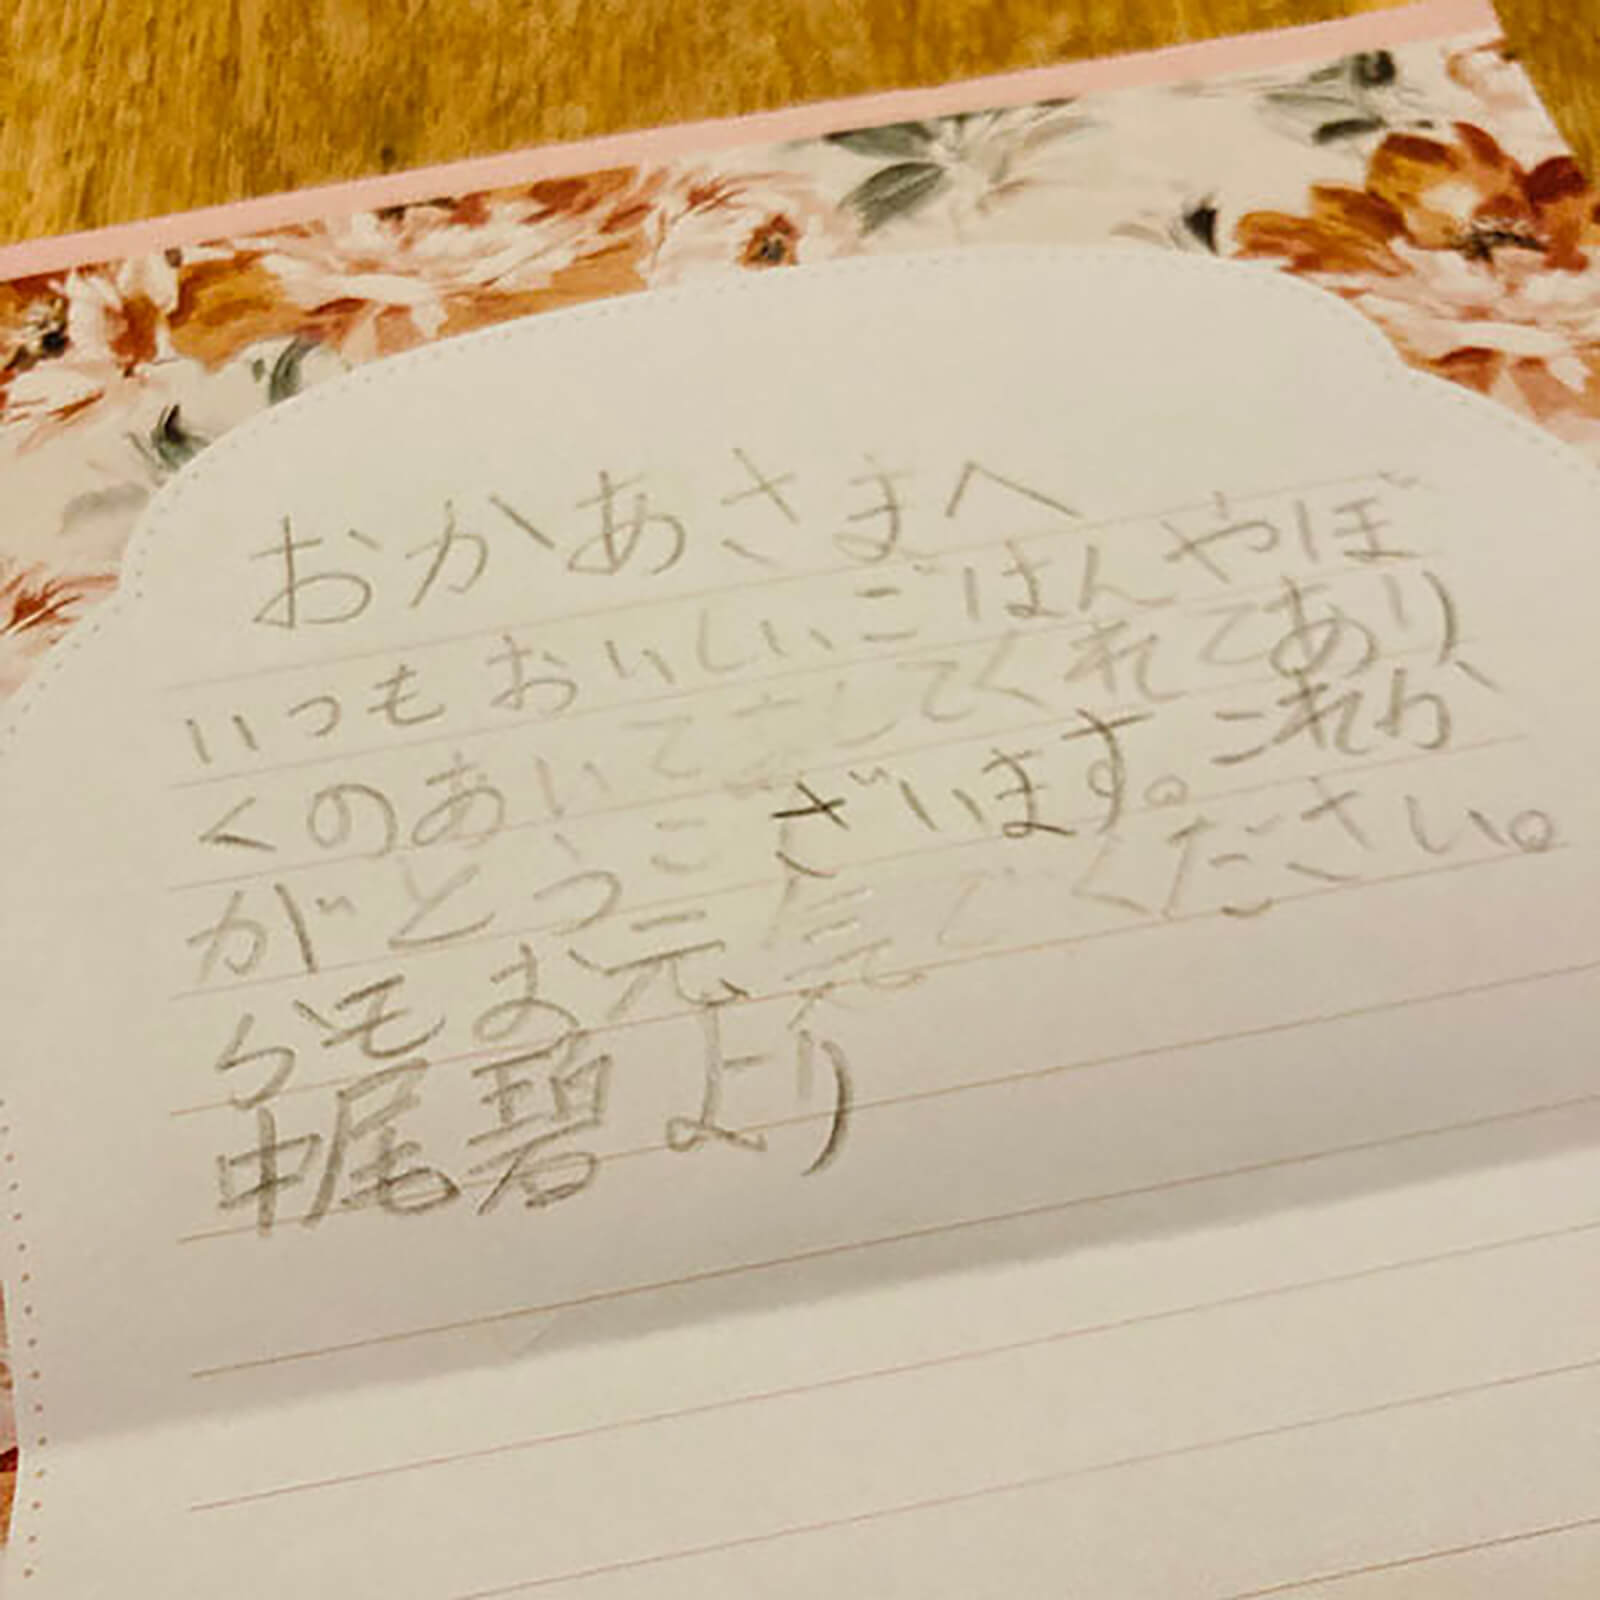 おかあさまへ
いつもおいしいごはんやぼ
くのあいてをしてくれてあり
がとうございます。これか
らもお元気でください。
中尾碧より